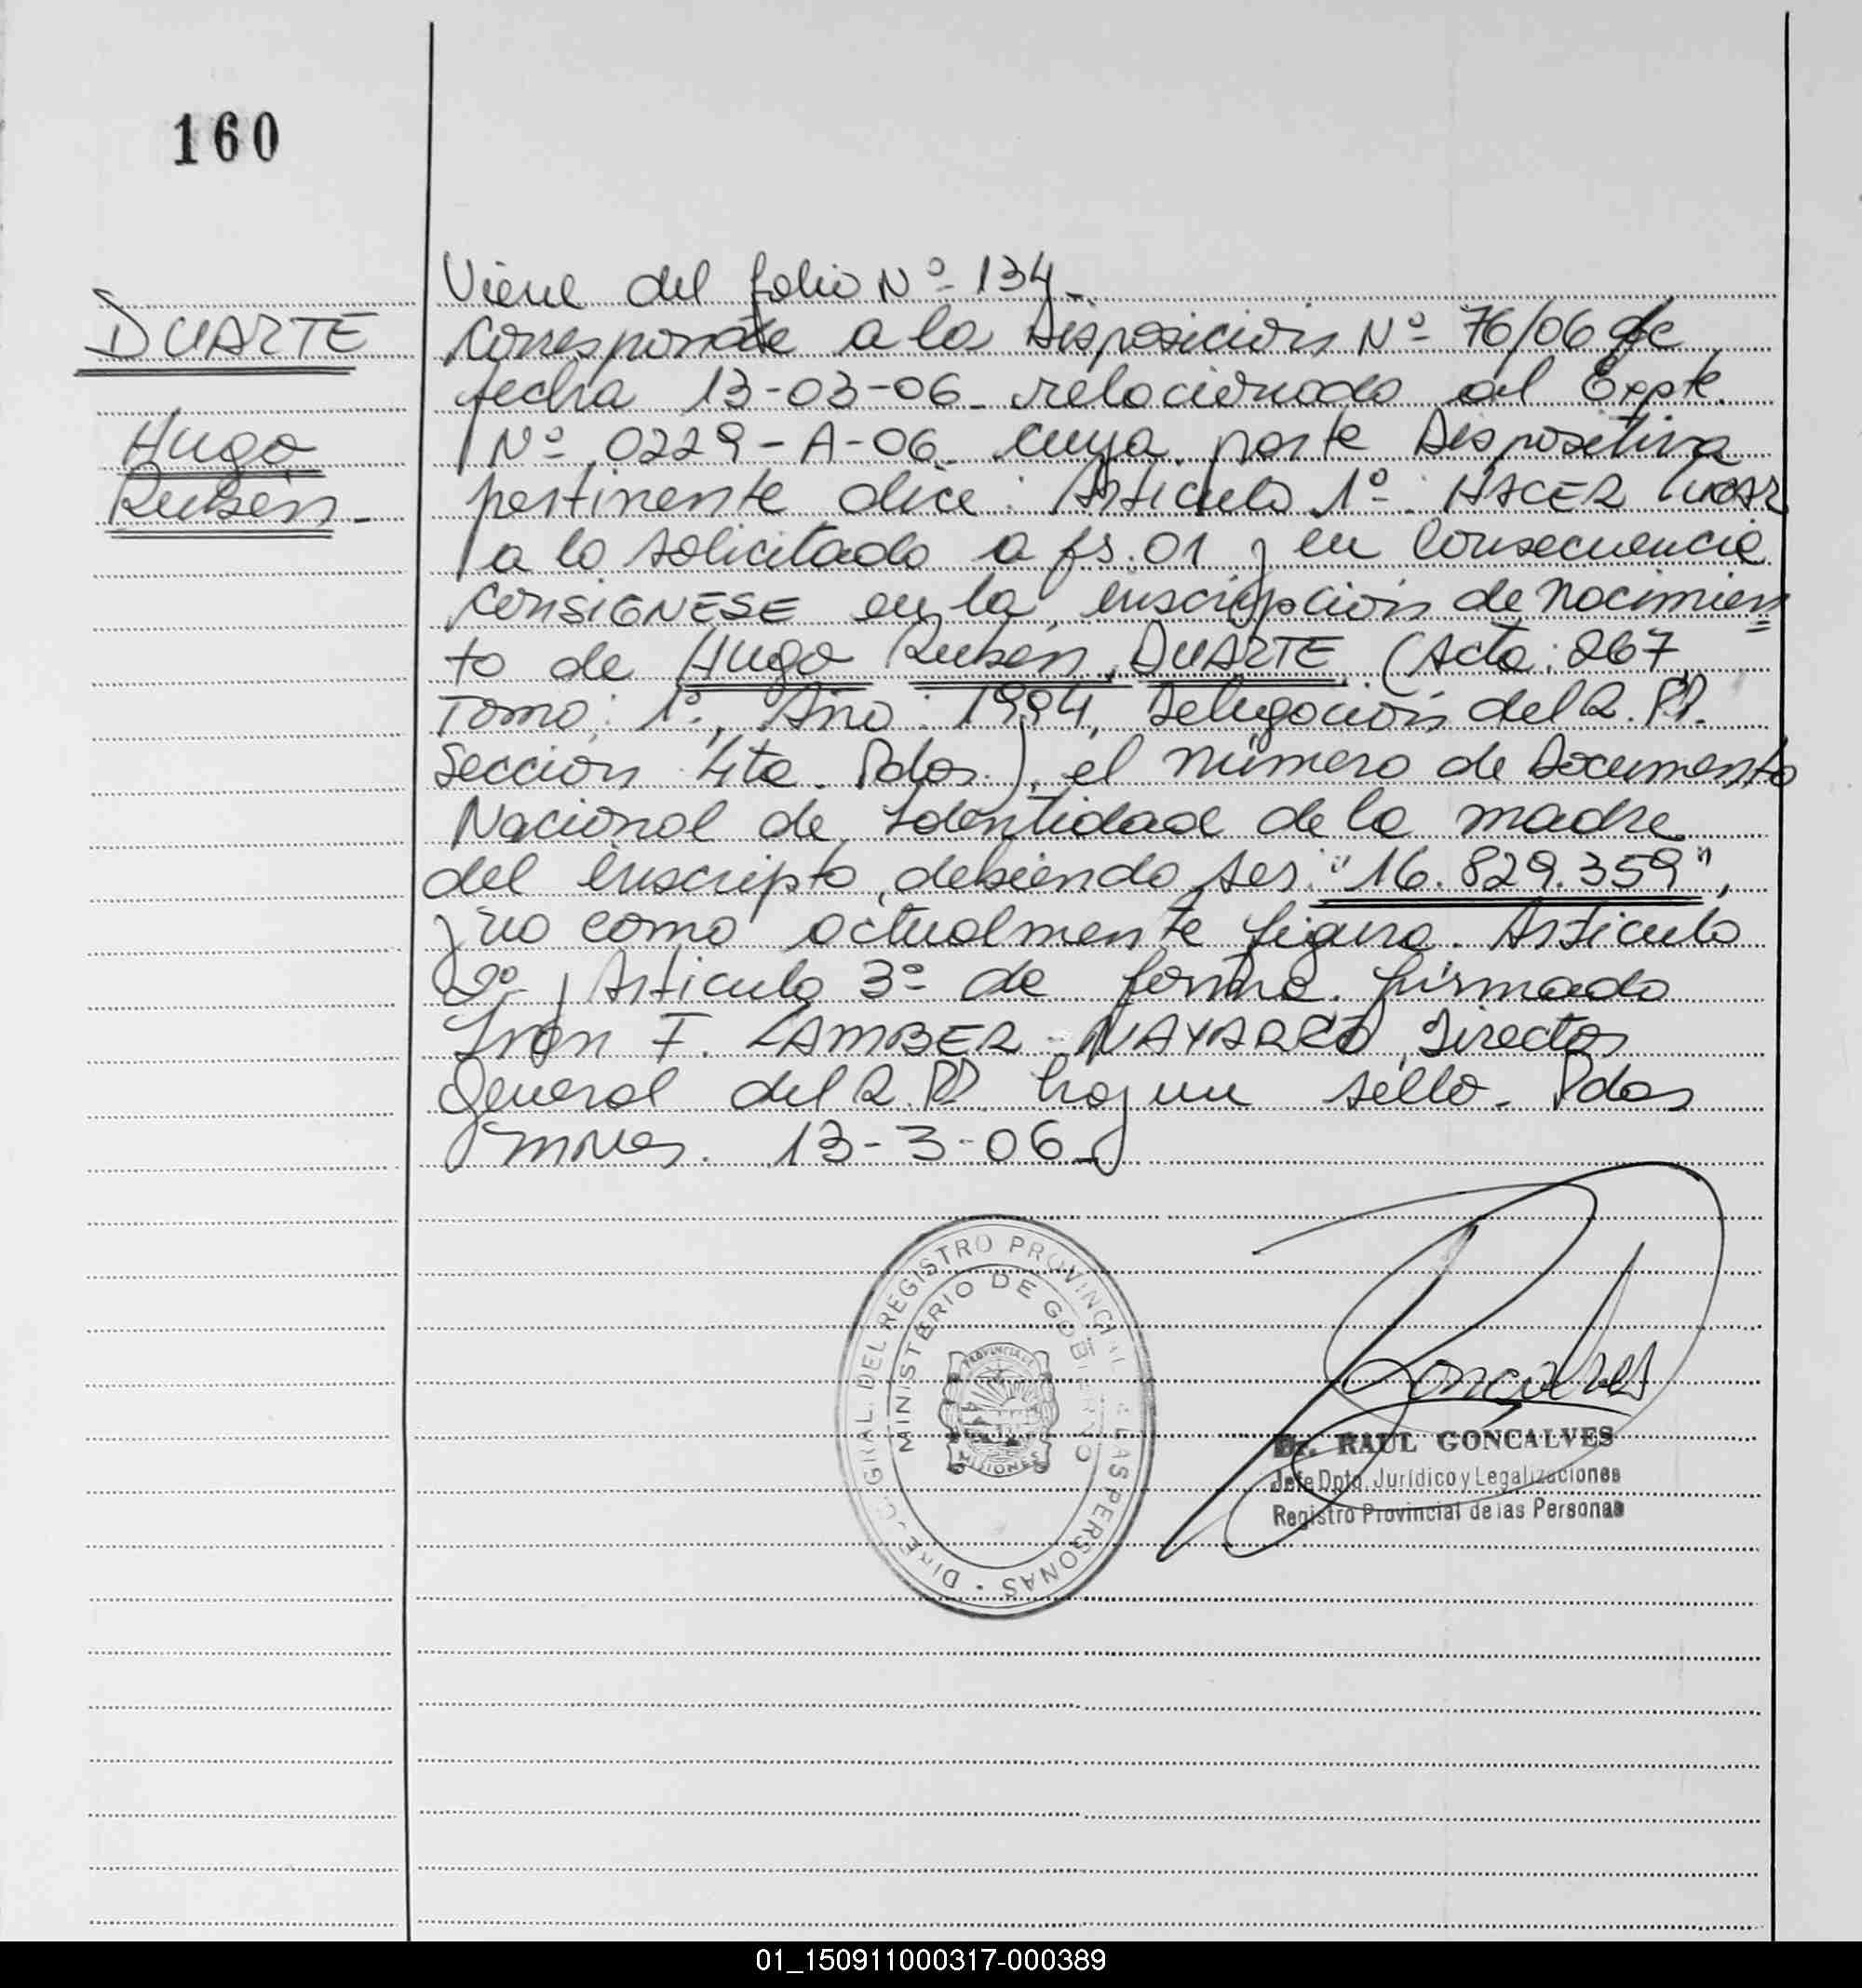 160
DUARTE
Hugo
Rubén.-
Viene del folio Nº 134.-
Corresponde a la Disposición Nº 76/06 de
fecha 13-03-06- relacionado al Expte.
Nº 0229-A-06- cuya parte Dispositiva
pertinente dice: Artículo 1º: HACER LUGAR
a lo solicitado a fs.01 y en Consecuencia
CONSIGNESE en la inscripción de nacimien
to de Hugo Rubén DUARTE (Acta: 267
Tomo: 1º, Año: 1994, Delegación del R.PP.
Sección 4ta. Pdas.), el número de Documento
Nacional de Identidad de la madre
del inscripto, debiendo ser: "16.829.359",
y no como actualmente figura. Artículo
2º y Artículo 3º de forma. firmado
Iván F. LAMBER - NAYARRO, Director
General del R.PP. hay un sello. Pdas
mnes. 13-3-06-
DEL REGISTRO PROVINCIAL DE LAS PERSONAS
MINISTERIO DE GOBIERNO
PROVINCIA DE
MISIONES
Goncalves
Dr. RAUL GONCALVES
Jefe Dpto. Jurídico y Legalizaciones
Registro Provincial de las Personas
01_150911000317-000389